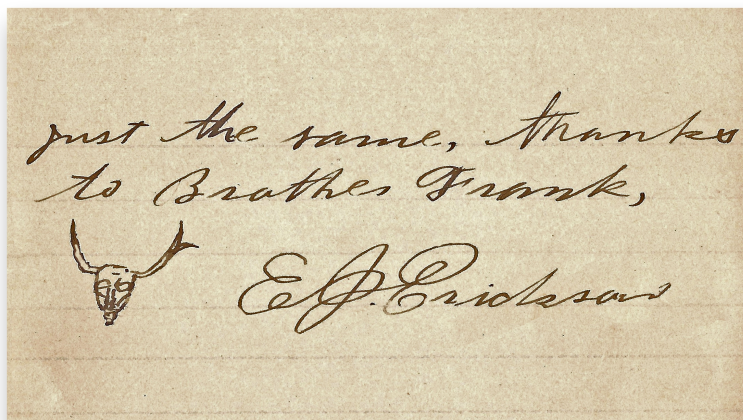 just the same, thanks
to Brother Frank,
E.J. Erickson